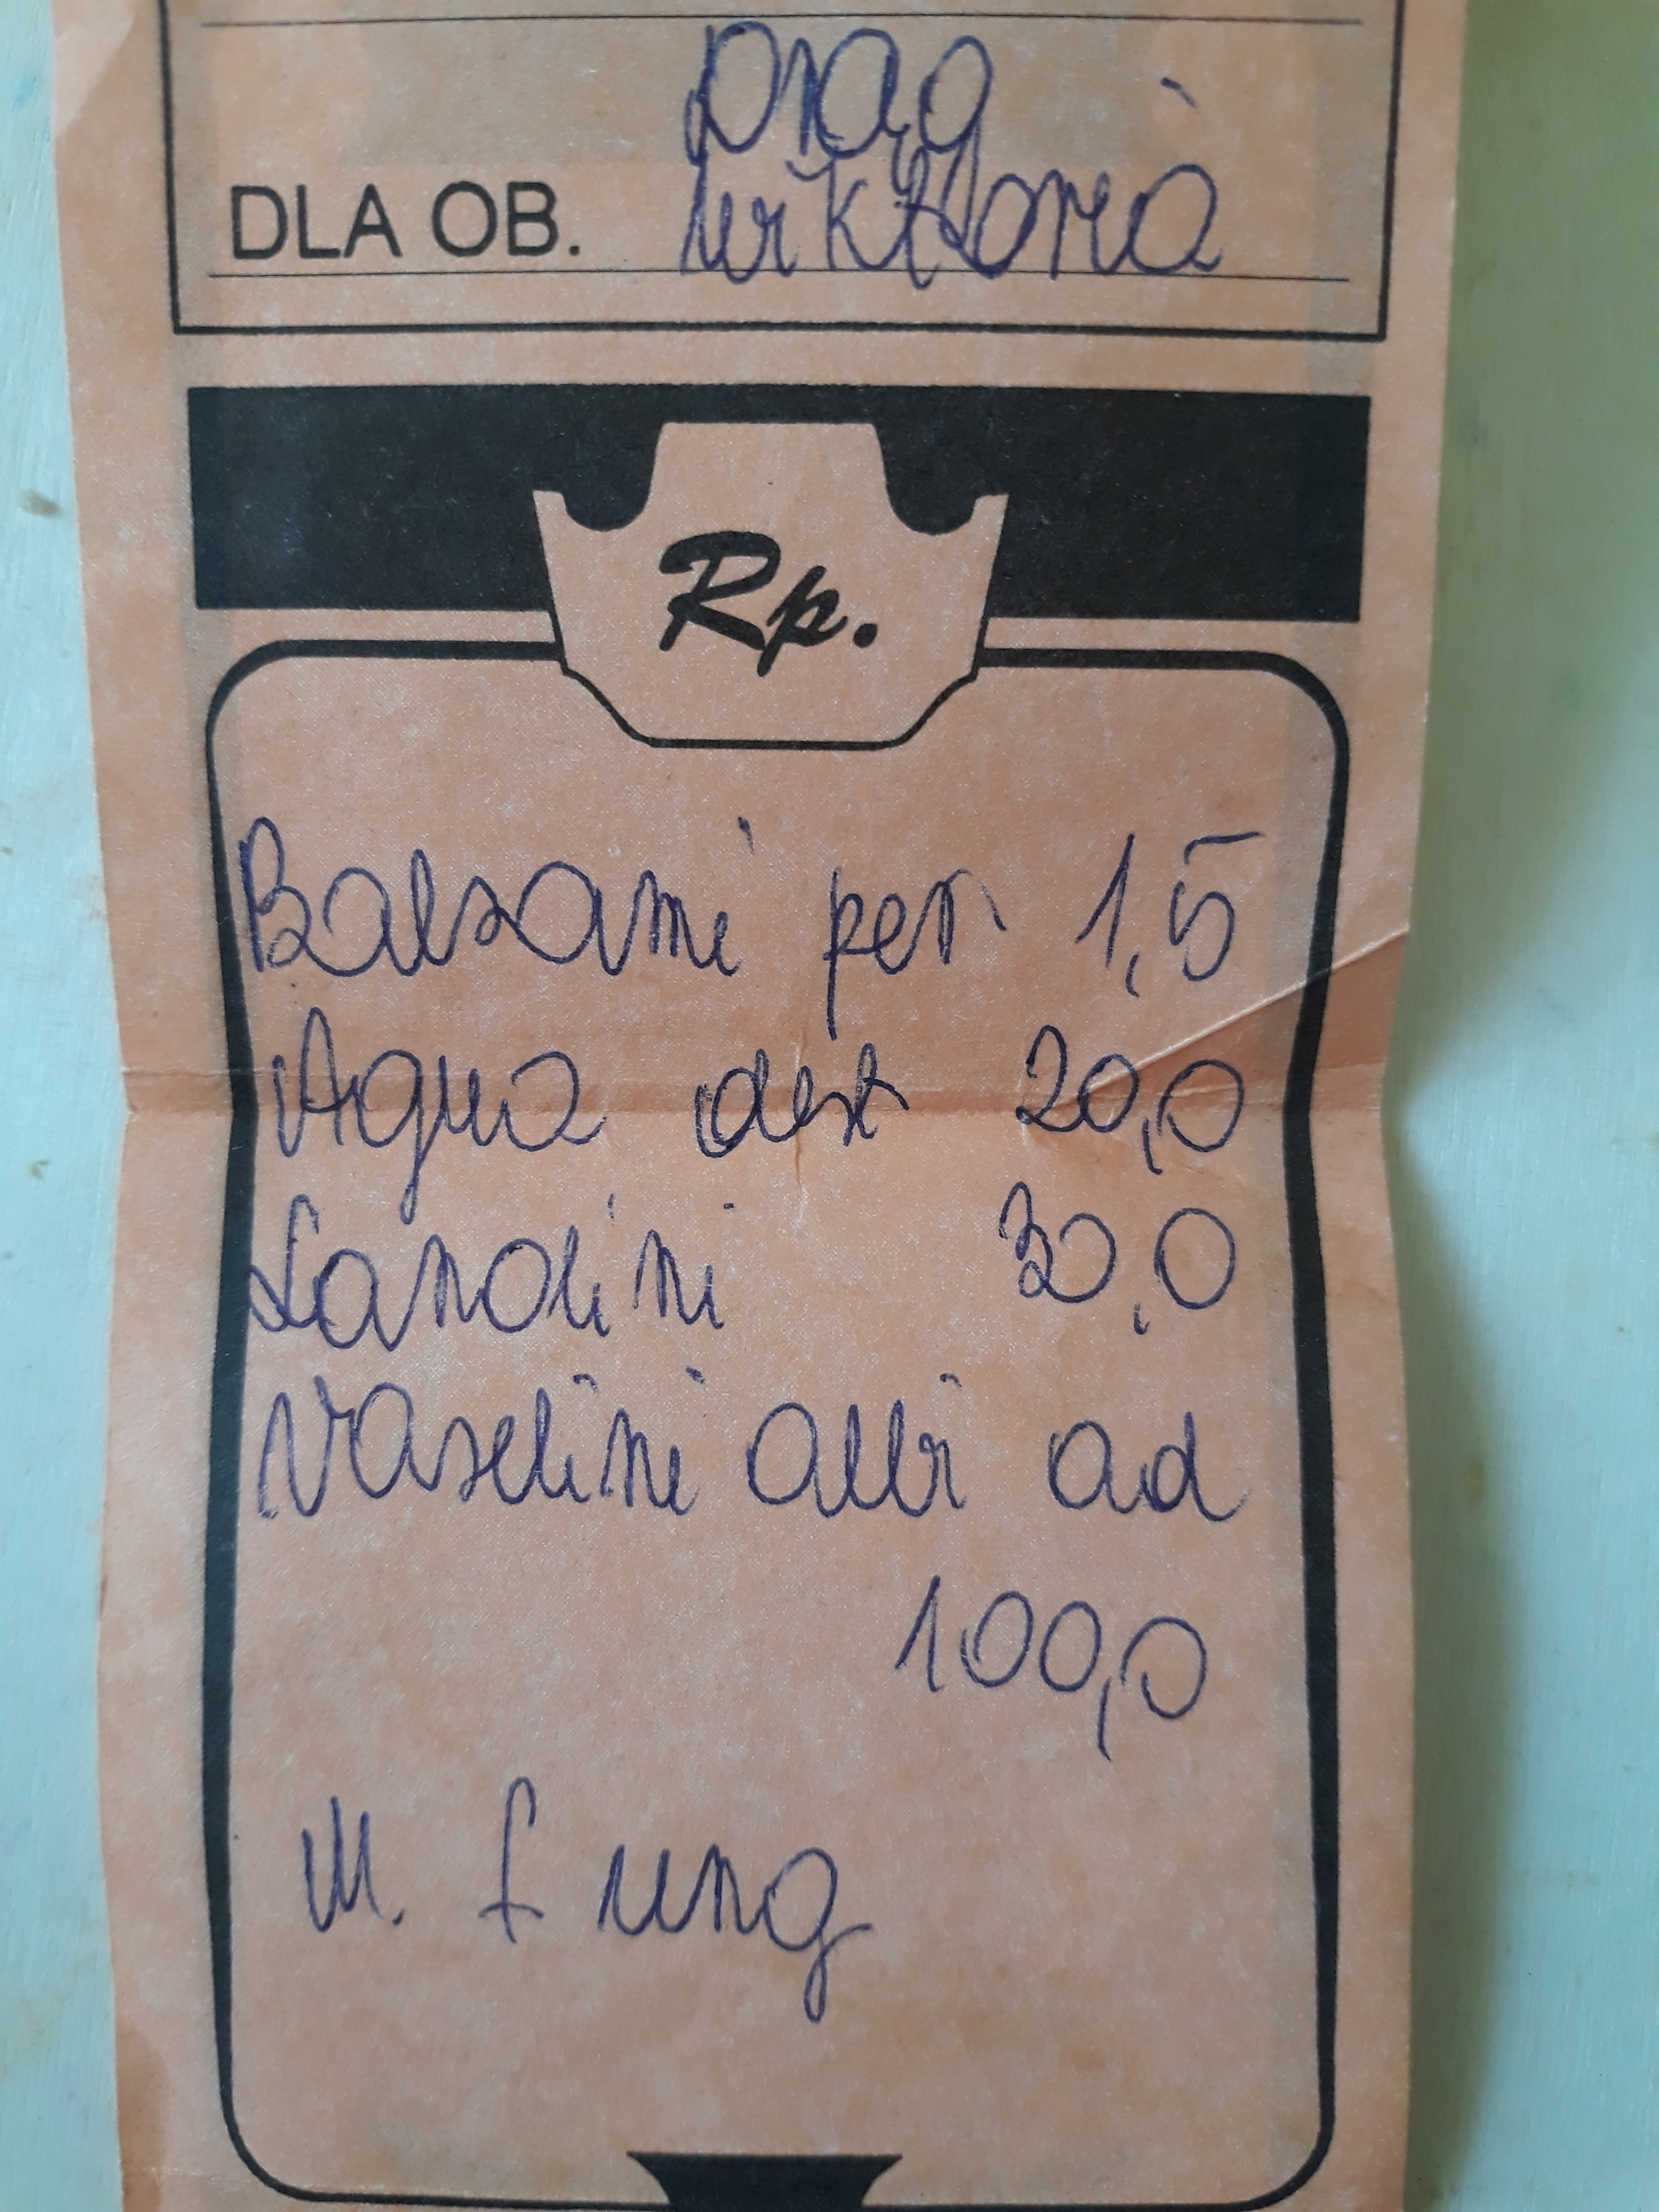 Drąg
DLA OB. Wiktoria
Rp.
Balsami per. 1,5
Aqua dest 20,0
Lanolini 30,0
Vaselini albi ad
100,0
M. f ung